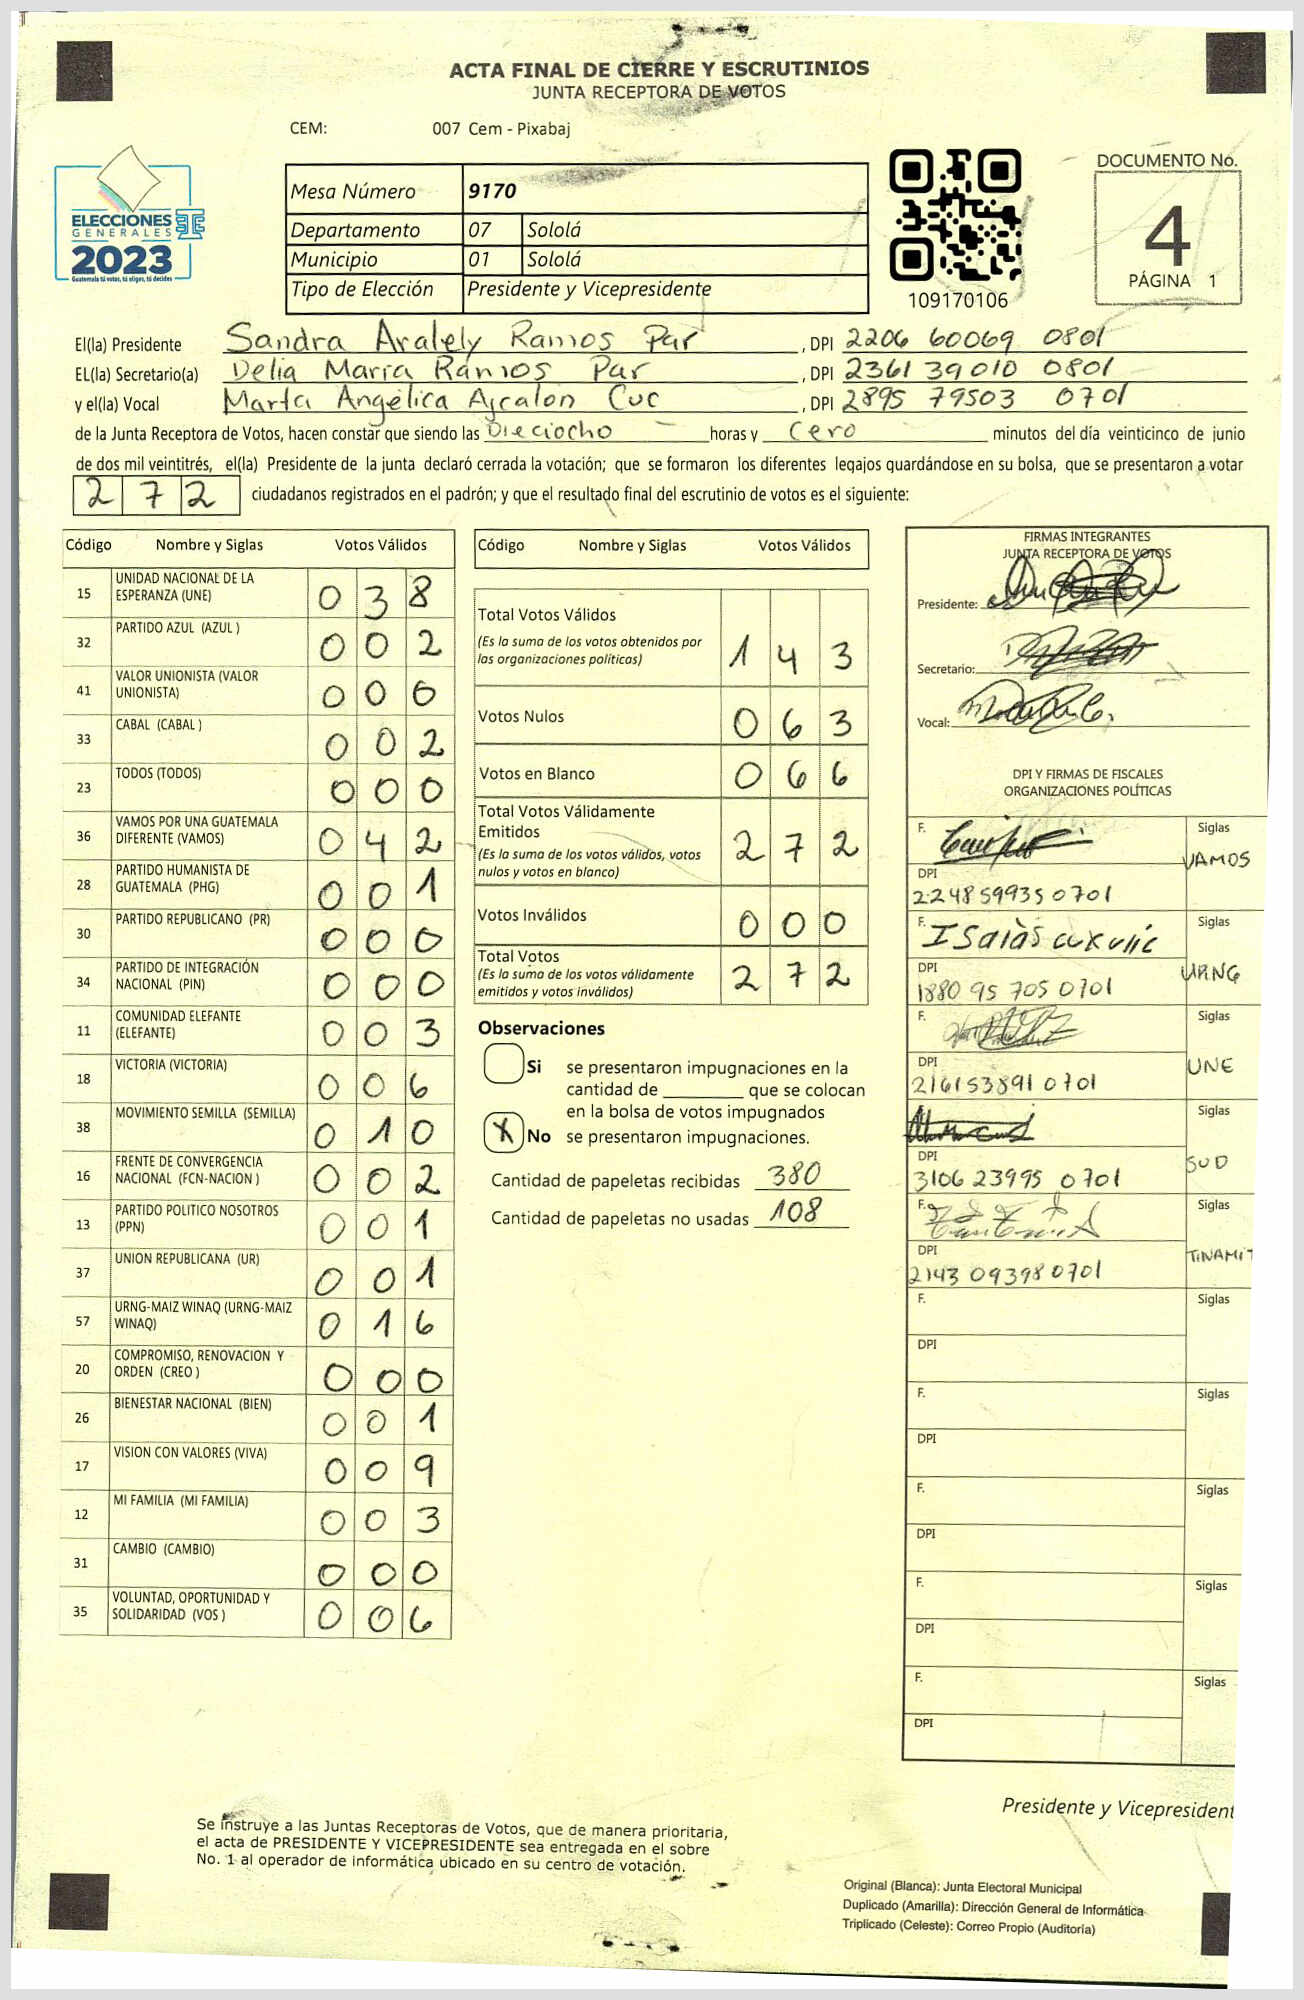 ACTA FINAL DE CIERRE Y ESCRUTINIOS
JUNTA RECEPTORA DE VOTOS
CEM: 007 Cem - Pixabaj
ELECCIONES
GENERALES
2023
Guatemala tú votas, tú eliges, tú decides
Mesa Número 9170
Departamento 07 Sololá
Municipio 01 Sololá
Tipo de Elección Presidente y Vicepresidente
109170106
DOCUMENTO No.
4
PÁGINA 1
El(la) Presidente Sandra Aralely Ramos Par, DPI 2206 60069 0801
EL(la) Secretario(a) Delia María Ramos Par, DPI 2361 39010 0801
y el(la) Vocal Marta Angélica Ajcalon Cuc, DPI 2895 79503 0701
de la Junta Receptora de Votos, hacen constar que siendo las Dieciocho horas y Cero minutos del día veinticinco de junio
de dos mil veintitrés, el(la) Presidente de la junta declaró cerrada la votación; que se formaron los diferentes legajos guardándose en su bolsa, que se presentaron a votar
272 ciudadanos registrados en el padrón; y que el resultado final del escrutinio de votos es el siguiente:
Código Nombre y Siglas Votos Válidos
15 UNIDAD NACIONAL DE LA ESPERANZA (UNE) 038
32 PARTIDO AZUL (AZUL ) 002
41 VALOR UNIONISTA (VALOR UNIONISTA) 000
33 CABAL (CABAL ) 002
23 TODOS (TODOS) 000
36 VAMOS POR UNA GUATEMALA DIFERENTE (VAMOS) 042
28 PARTIDO HUMANISTA DE GUATEMALA (PHG) 001
30 PARTIDO REPUBLICANO (PR) 000
34 PARTIDO DE INTEGRACIÓN NACIONAL (PIN) 000
11 COMUNIDAD ELEFANTE (ELEFANTE) 003
18 VICTORIA (VICTORIA) 006
38 MOVIMIENTO SEMILLA (SEMILLA) 010
16 FRENTE DE CONVERGENCIA NACIONAL (FCN-NACION ) 002
13 PARTIDO POLITICO NOSOTROS (PPN) 001
37 UNION REPUBLICANA (UR) 001
57 URNG-MAIZ WINAQ (URNG-MAIZ WINAQ) 016
20 COMPROMISO, RENOVACION Y ORDEN (CREO ) 000
26 BIENESTAR NACIONAL (BIEN) 001
17 VISION CON VALORES (VIVA) 009
12 MI FAMILIA (MI FAMILIA) 003
31 CAMBIO (CAMBIO) 000
35 VOLUNTAD, OPORTUNIDAD Y SOLIDARIDAD (VOS ) 006
Código Nombre y Siglas Votos Válidos
Total Votos Válidos 143
(Es la suma de los votos obtenidos por
las organizaciones políticas)
Votos Nulos 063
Votos en Blanco 066
Total Votos Válidamente
Emitidos 272
(Es la suma de los votos válidos, votos
nulos y votos en blanco)
Votos Inválidos 000
Total Votos 272
(Es la suma de los votos válidamente
emitidos y votos inválidos)
Observaciones
Si se presentaron impugnaciones en la
cantidad de ________ que se colocan
en la bolsa de votos impugnados
X No se presentaron impugnaciones.
Cantidad de papeletas recibidas 380
Cantidad de papeletas no usadas 108
FIRMAS INTEGRANTES
JUNTA RECEPTORA DE VOTOS
Presidente:
Secretario:
Vocal:
DPI Y FIRMAS DE FISCALES
ORGANIZACIONES POLÍTICAS
F. Siglas VAMOS
DPI 2248 59935 0701
F. Isaiàs Siglas URNG
DPI 1880 95 705 0701
F. Siglas UNE
DPI 2161538910701
F. Siglas SUD
DPI 3106 23995 0701
F. Siglas TINAMIT
DPI 2143 09398 0701
F. Siglas
DPI
F. Siglas
DPI
F. Siglas
DPI
F. Siglas
DPI
F. Siglas
DPI
Presidente y Vicepresident
Se instruye a las Juntas Receptoras de Votos, que de manera prioritaria,
el acta de PRESIDENTE Y VICEPRESIDENTE sea entregada en el sobre
No. 1 al operador de informática ubicado en su centro de votación.
Original (Blanca): Junta Electoral Municipal
Duplicado (Amarilla): Dirección General de Informática
Triplicado (Celeste): Correo Propio (Auditoría)